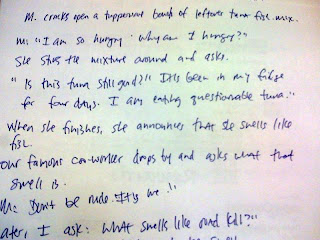 M. cracks open a tupperware bowl of leftover tuna fish mix.
M: "I am so hungry. Why am I hungry?"
She stirs the mixture around and asks.
"Is this tuna still good?" It's been in my fridge
for four days. I am eating questionable tuna."
When she finishes, she announces that she smells like
fish.
Our famous co-worker drops by and asks what that
smell is.
M: Don't be rude. It's me!"
Later, I ask: What smells like road kill?"